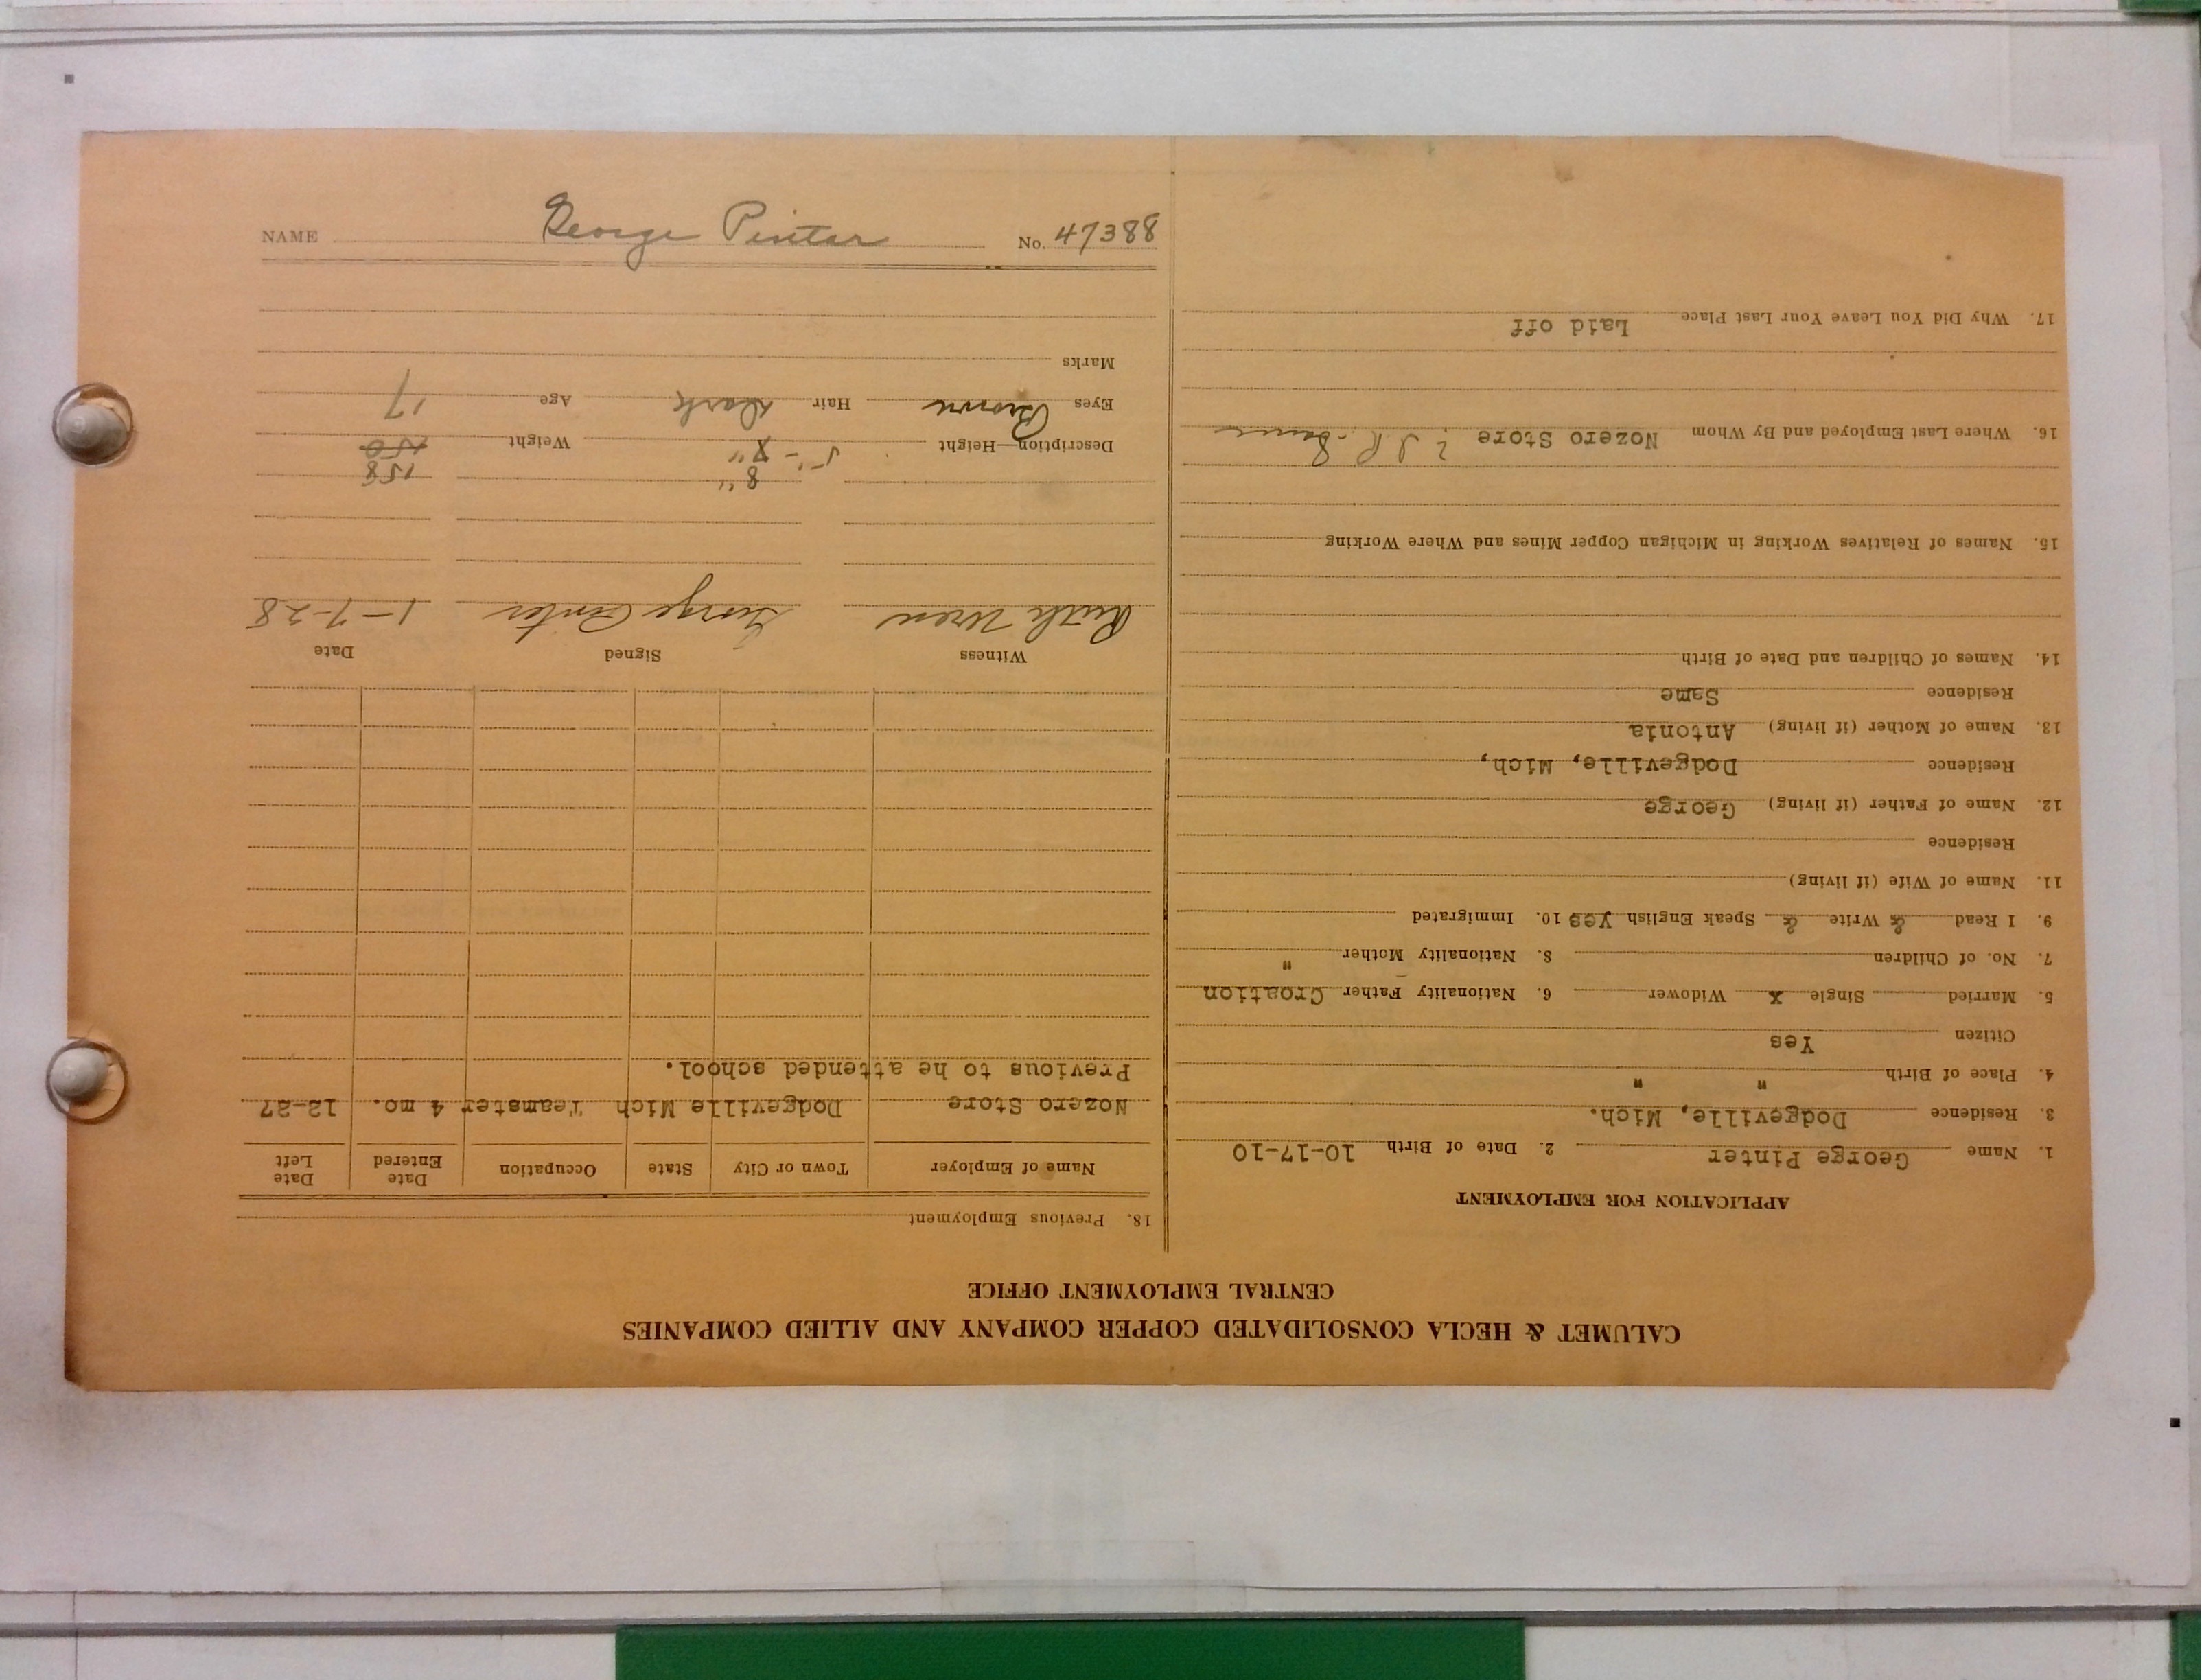 CALUMET & HECLA CONSOLIDATED COPPER COMPANY AND ALLIED COMPANIES
CENTRAL EMPLOYMENT OFFICE
APPLICATION FOR EMPLOYMENT
1. Name George Pinter 2. Date of Birth 10-17-10
3. Residence Dodgeville, Mich.
4. Place of Birth " "
Citizen Yes
5. Married Single X Widower 6. Nationality Father Croation
7. No. of Children 8. Nationality Mother "
9. I Read & Write & Speak English yes 10. Immigrated
11. Name of Wife (if living)
Residence
12. Name of Father (if living) George
Residence Dodgeville, Mich,
13. Name of Mother (if living) Antonia
Residence Same
14. Names of Children and Date of Birth
15. Names of Relatives Working in Michigan Copper Mines and Where Working
16. Where Last Employed and By Whom Nozero Store
17. Why Did You Leave Your Last Place Laid off
18. Previous Employment
Name of Employer Town or City State Occupation Date Entered Date Left
Nozero Store Dodgeville Mich Teamster 4 mo. 12-27
Previous to he attended school.
Witness Signed Date
Ruth Wren George Pinter 1-7-28
8" 158
Description—Height 5'- Weight 150
Eyes Brown Hair Dark Age 17
Marks
NAME George Pinter No. 47388